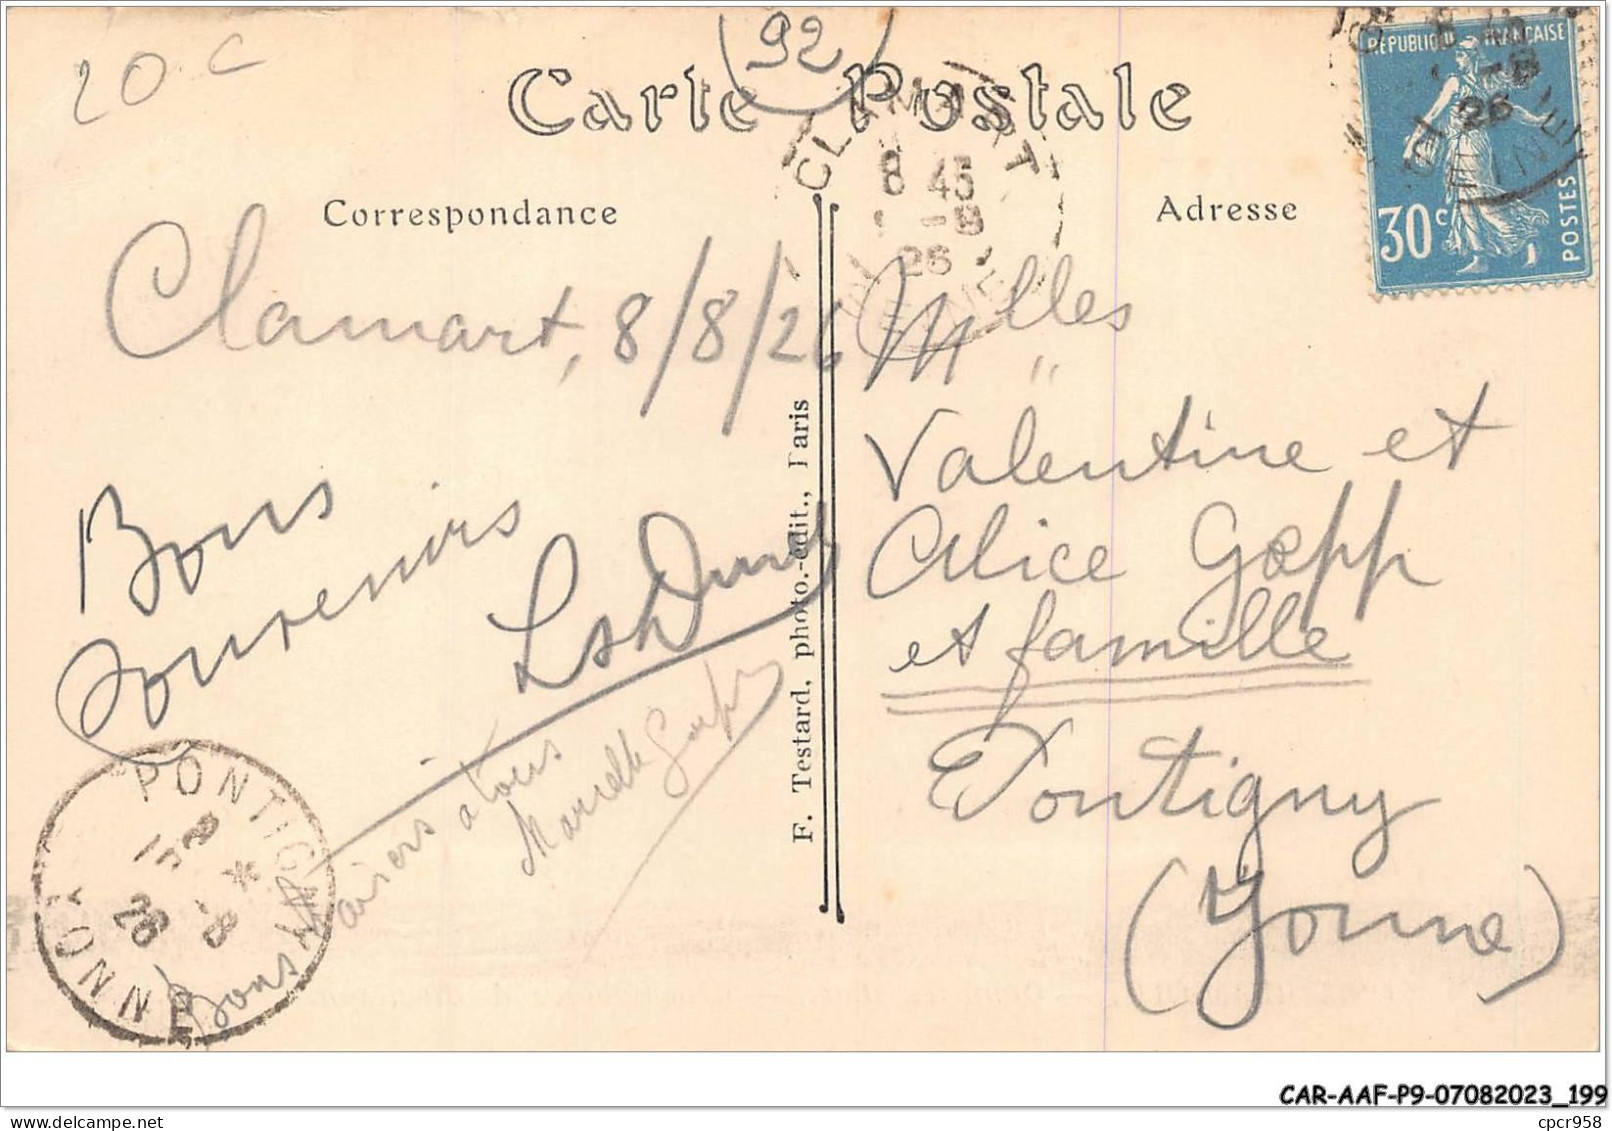 20 c
(92)
Carte Postale
Correspondance
Adresse
CLAMART
8 45
-8
26
RÉPUBLIQUE FRANÇAISE
26
30 c
POSTES
Clamart, 8/8/26
Bons
Souvenirs
Bons Baisers a tous
Marcelle Goepp
F. Testard, photo.-édit., Paris
Mlles
Valentine et
Alice Goepp
et famille
Pontigny
(Yonne)
PONTIGNY
-8
26
YONNE
CAR-AAF-P9-07082023_199
cpcr958